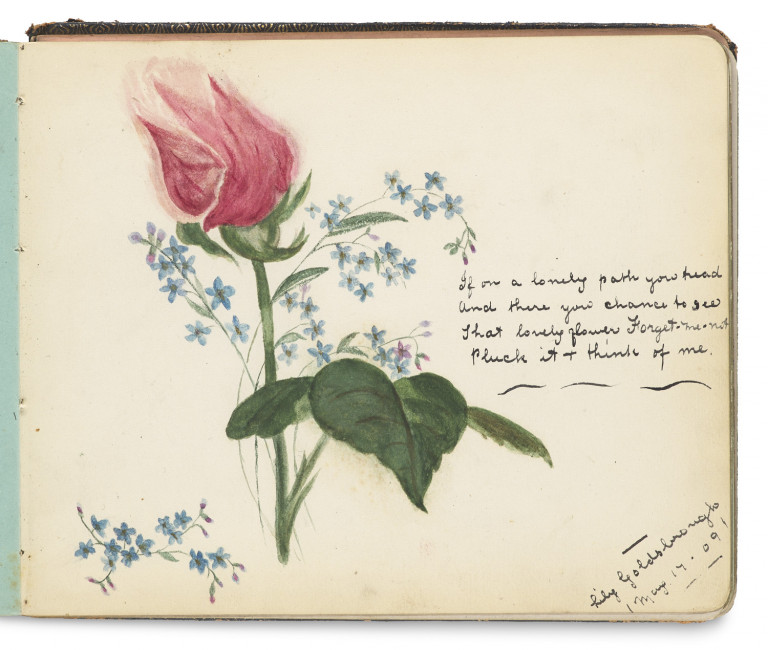 If on a lonely path you tread
And there you chance to see
That lovely flower Forget-me-not
Pluck it + think of me.
Lily Goldsbrough
May 17. 09.